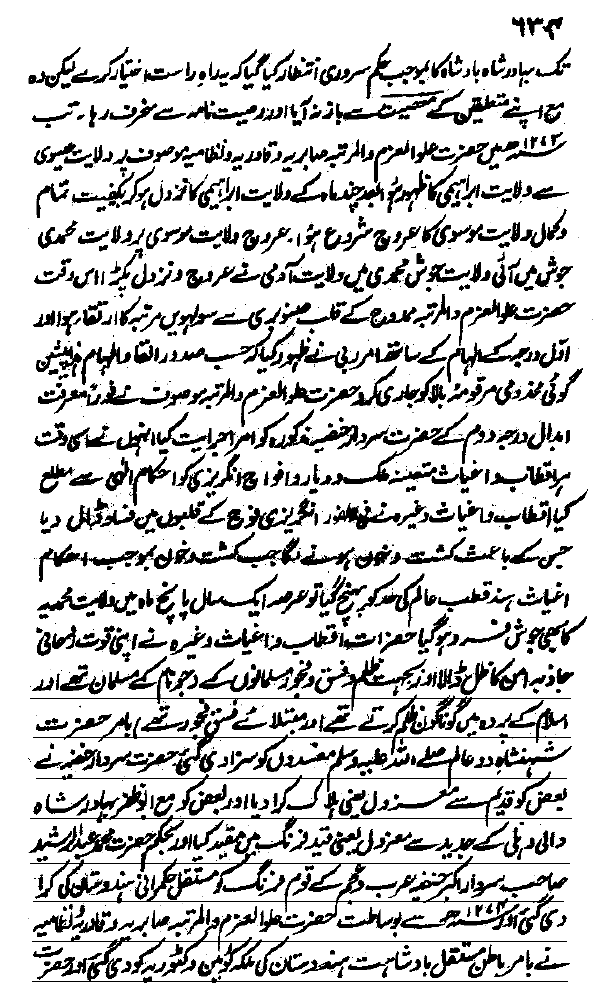 ۶۳۳
تک بہادر شاہ بادشاہ کا بموجب حکم سروری انتظار کیا گیا کہ یہ راہ راست اختیار کرے لیکن وہ
مع اپنے متعلقین کے معصیت سے باز نہ آیا اور وصیت نامہ سے منحرف رہا۔ تب
۱۲۷۲ھ میں حضرت علو العزم والمرتبہ صابریہ و قادریہ و نظامیہ موصوف پر ولایت عیسوی
سے ولایت ابراہیمی کا ظہور ہوا بعد چند ماہ کے ولایت ابراہیمی کا نزول ہو کر بکیفیت تمام
و کمال ولایت موسوی کا عروج شروع ہوا۔ عروج ولایت موسوی پر ولایت محمدی
جوش میں آئی ولایت جوش محمدی میں ولایت آدمی نے عروج و نزول پکڑا اس وقت
حضرت علو العزم والمرتبہ ممدوح کے قلب صنوبری سے سولہویں مرتبہ کا ارتقا ہوا اور
اول درجہ کے الہام کے ساتھ امر ربی نے ظہور کیا کہ حسب صدور القا و الہام پیشین
گوئی مخدومی مرقومۂ بالا کو جاری کرو حضرت علو العزم والمرتبہ موصوف نے فوراً معرفت
ابدال درجہ دوم کے حضرت سردار خفیہ مذکورہ کو امر اجرائیت کیا انہوں نے اسی وقت
ہر اقطاب و اغیاث متعینہ ملک و دیار و افواج انگریزی کو احکام الٰہی سے مطلع
کیا اقطاب و اغیاث وغیرہ نے فی الفور انگریزی فوج کے قلبوں میں فساد ڈال دیا
جس کے باعث کشت و خون ہونے لگا جب کشت و خون بموجب احکام
اغیاث ہند قطب عالم کی حد کو پہنچ گیا تو عرصہ ایک سال پانچ ماہ میں ولایت محمدیہ
کا بھی جوش فرو ہو گیا حضرات اقطاب و اغیاث وغیرہ نے اپنی قوت روحانی
جاذبہ امن کا ظل ڈالا اور بجہت ظلم و فسق و فجور مسلمانوں کے (جو نام کے مسلمان تھے اور
اسلام کے پردہ میں گوناگوں ظلم کرتے تھے اور مبتلائے فسق و فجور تھے) بامر حضرت
شہنشاہ دو عالم صلے اللہ علیہ وسلم مفسدوں کو سزا دی گئی حضرت سردار خفیہ نے
بعض کو قدیم سے معزول یعنی ہلاک کرا دیا اور بعض کو مع ابو ظفر بہادر شاہ
والی دہلی کے جدید سے معزول یعنی قید فرنگ میں مقید کیا اور بحکم حضرت محمد عبدالرشید
صاحب سردار اکبر خفیہ عرب و عجم کے قوم فرنگ کو مستقل حکمرانی ہندوستان کی کرا
دی گئی اور ۱۲۷۴ھ سے بوساطت حضرت علو العزم والمرتبہ صابریہ و قادریہ نظامیہ
نے بامر باطن مستقل بادشاہت ہندوستان کی ملکہ کوئین وکٹوریہ کو دی گئی اور حضرت